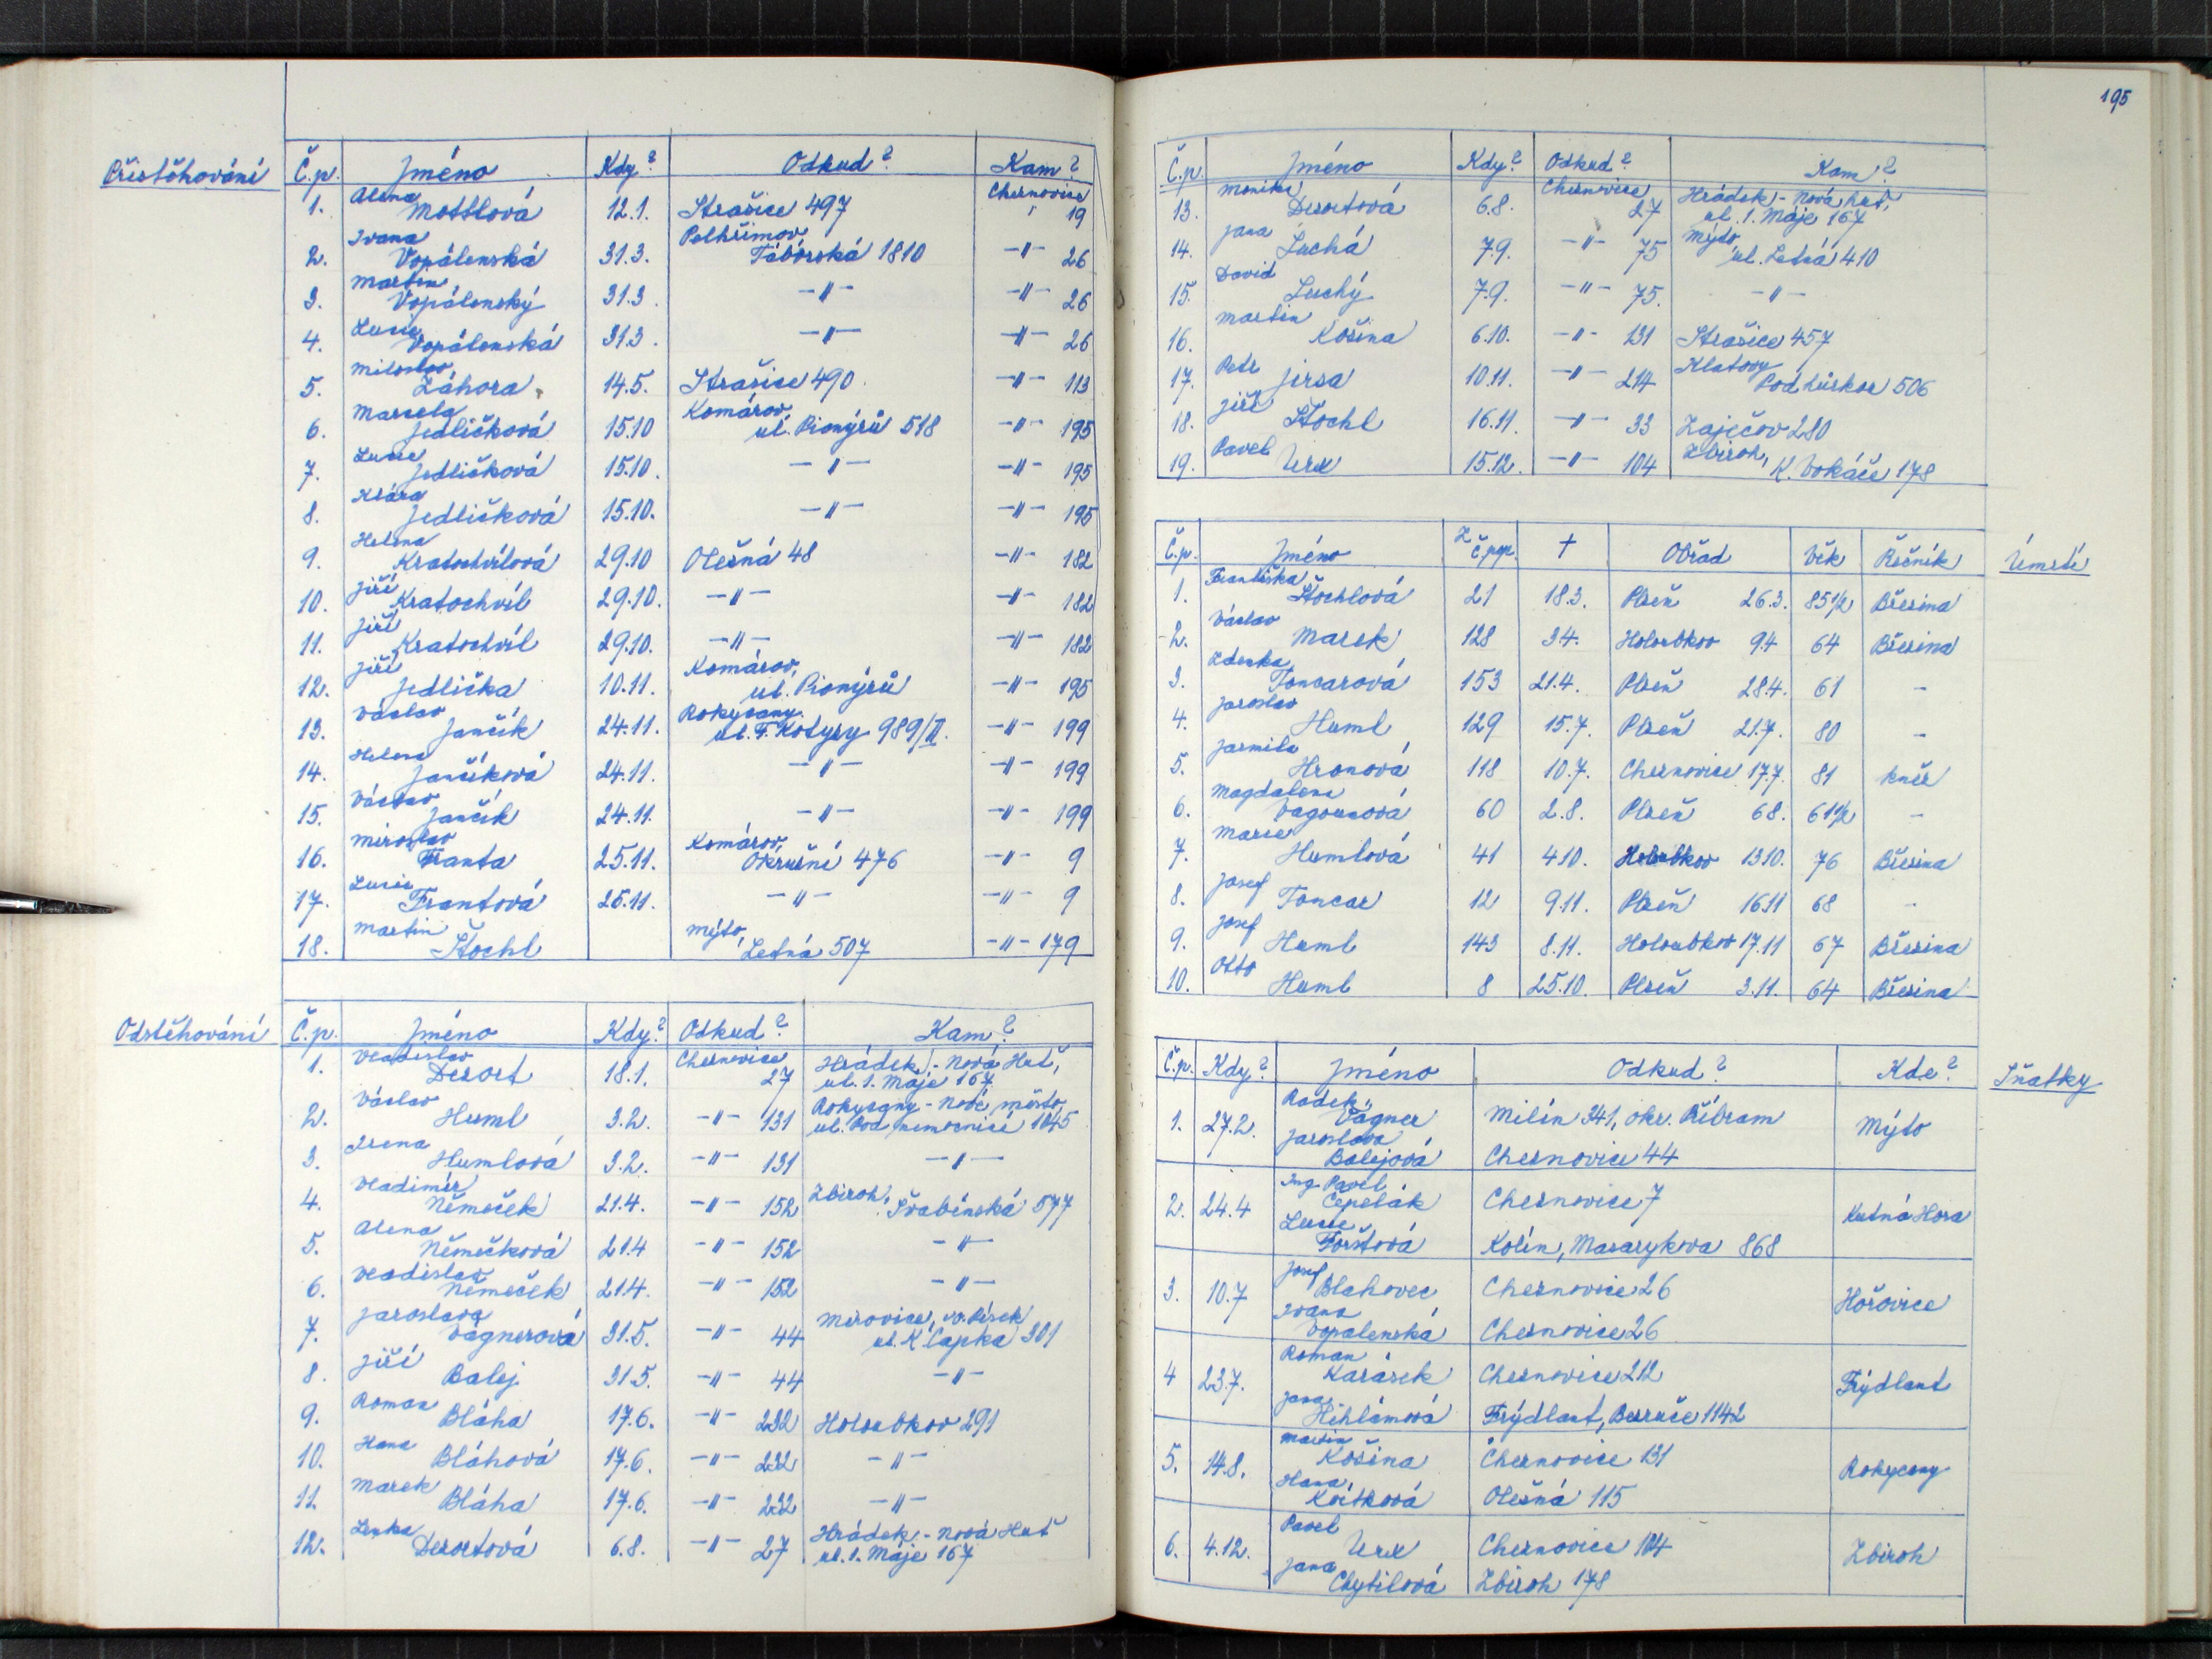 Přistěhování
Č.p. Jméno Kdy? Odkud? Kam?
1. Alena Mottlová 12.1. Strašice 497 Cheznovice 19
2. Ivana Vopálenská 31.3. Pelhřimov, Táborská 1810 -"- 26
3. Martin Vopálenský 31.3. -"- -"- 26
4. Lucie Vopálenská 31.3. -"- -"- 26
5. Miloslav Záhora 14.5. Strašice 490 -"- 113
6. Marcela Jedličková 15.10 Komárov, ul. Pionýrů 518 -"- 195
7. Lucie Jedličková 15.10. -"- -"- 195
8. Klára Jedličková 15.10. -"- -"- 195
9. Helena Kratochvílová 29.10 Olešná 48 -"- 182
10. Jiří Kratochvíl 29.10. -"- -"- 182
11. Jiří Kratochvíl 29.10. -"- -"- 182
12. Jiří Jedlička 10.11. Komárov, ul. Pionýrů -"- 195
13. Václav Jančík 24.11. Rokycany ul. F. Kotyzy 989/II. -"- 199
14. Helena Jančíková 24.11. -"- -"- 199
15. Václav Jančík 24.11. -"- -"- 199
16. Miroslav Franta 25.11. Komárov, Okružní 476 -"- 9
17. Lucie Frantová 25.11. -"- -"- 9
18. Martin Štochl Mýto, Letná 507 -"- 179
Odstěhování
Č.p. Jméno Kdy? Odkud? Kam?
1. Vladislav Dezort 18.1. Cheznovice 27 Hrádek - Nová Huť, ul. 1. Máje 167
2. Václav Huml 3.2. -"- 131 Rokycany - Nové město, ul. Pod nemocnicí 1045
3. Irena Humlová 3.2. -"- 131 -"-
4. Vladimír Němeček 21.4. -"- 152 Zbiroh, Švabinská 577
5. Alena Němečková 21.4 -"- 152 -"-
6. Vladislav Němeček 21.4. -"- 152 -"-
7. Jaroslava Vágnerová 31.5. -"- 44 Mirovice, o. Písek ul. K. Čapka 301
8. Jiří Balej 31.5. -"- 44 -"-
9. Roman Bláha 17.6. -"- 232 Holoubkov 291
10. Hana Bláhová 17.6. -"- 232 -"-
11. Marek Bláha 17.6. -"- 232 -"-
12. Lenka Dezortová 6.8. -"- 27 Hrádek - Nová Huť ul. 1. Máje 167
195
Č.p. Jméno Kdy? Odkud? Kam?
13. Monika Dezortová 6.8. Cheznovice 27 Hrádek - Nová huť, ul. 1. Máje 167
14. Jana Suchá 7.9. -"- 75 Mýto, ul. Letná 410
15. David Suchý 7.9. -"- 75. -"-
16. Martin Košina 6.10. -"- 131 Strašice 457
17. Petr Jirsa 10.11. -"- 214 Klatovy Pod Hůrkou 506
18. Jiří Štochl 16.11. -"- 33 Zaječov 280
19. Pavel Urx 15.12. -"- 104 Zbiroh, K. Vokáče 178
Úmrtí
Č.p. Jméno Z č.pop. † Obřad Věk Řečník
1. Františka Štochlová 21 18.3. Plzeň 26.3. 85 1/2 Březina
2. Václav Marek 128 3.4. Holoubkov 9.4 64 Březina
3. Zdenka Toncarová 153 21.4. Plzeň 28.4. 61 -
4. Jaroslav Huml 129 15.7. Plzeň 21.7. 80 -
5. Jarmila Hronová 118 10.7. Cheznovice 17.7. 81 kněz
6. Magdalena Vagounová 60 2.8. Plzeň 6.8. 61 1/2 -
7. Marie Humlová 41 4.10. Holoubkov 13.10. 76 Březina
8. Josef Toncar 12 9.11. Plzeň 16.11 68 -
9. Josef Huml 143 8.11. Holoubkov 17.11 67 Březina
10. Otto Huml 8 25.10. Plzeň 3.11. 64 Březina
Sňatky
Č.p. Kdy? Jméno Odkud? Kde?
1. 27.2. Radek Vágner Milín 341, okr. Příbram Mýto
Jaroslava Balejová Cheznovice 44
2. 24.4 Ing. Pavel Čepelák Cheznovice 7 Kutná Hora
Lucie Forštová Kolín, Masarykova 868
3. 10.7 Josef Blahovec Cheznovice 26 Hořovice
Ivana Vopalenská Cheznovice 26
4 23.7. Roman Karásek Cheznovice 212 Frýdlant
Jana Frýdlant, 1142
5. 14.8. Martin Košina Cheznovice 131 Rokycany
Hana Kvítková Olešná 115
6. 4.12. Pavel Urx Cheznovice 104 Zbiroh
Jana Chytilová Zbiroh 178